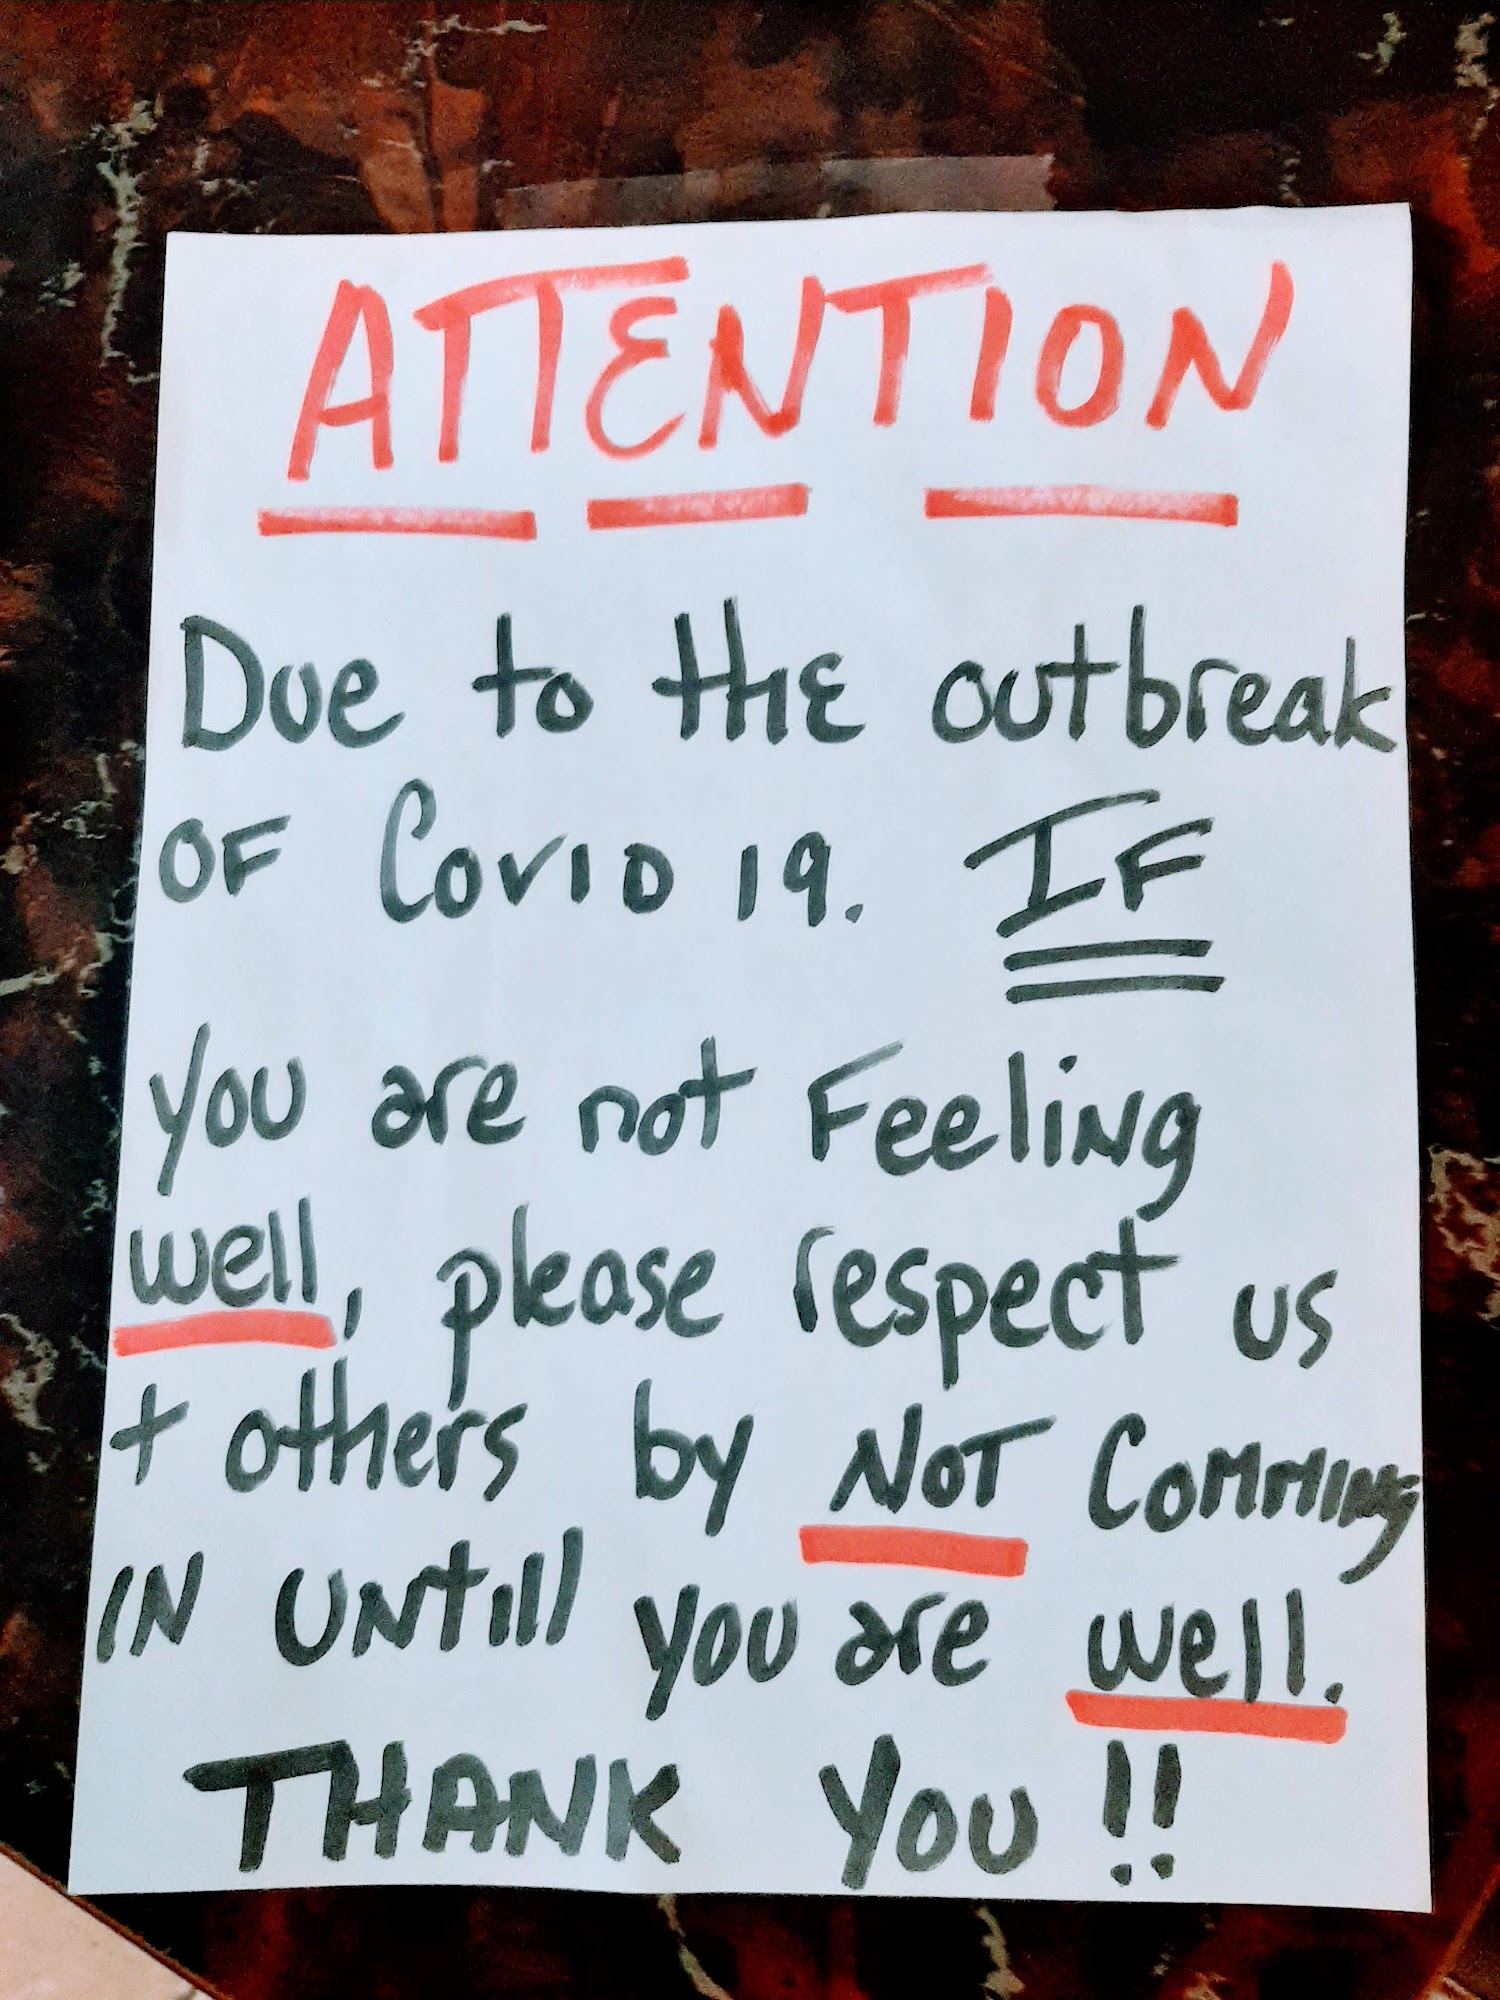 ATTENTION
Due to the outbreak
OF Covid 19. IF
you are not Feeling
well, please respect us
+ others by NOT Comming
IN UNtill you are well.
THANK YOU !!